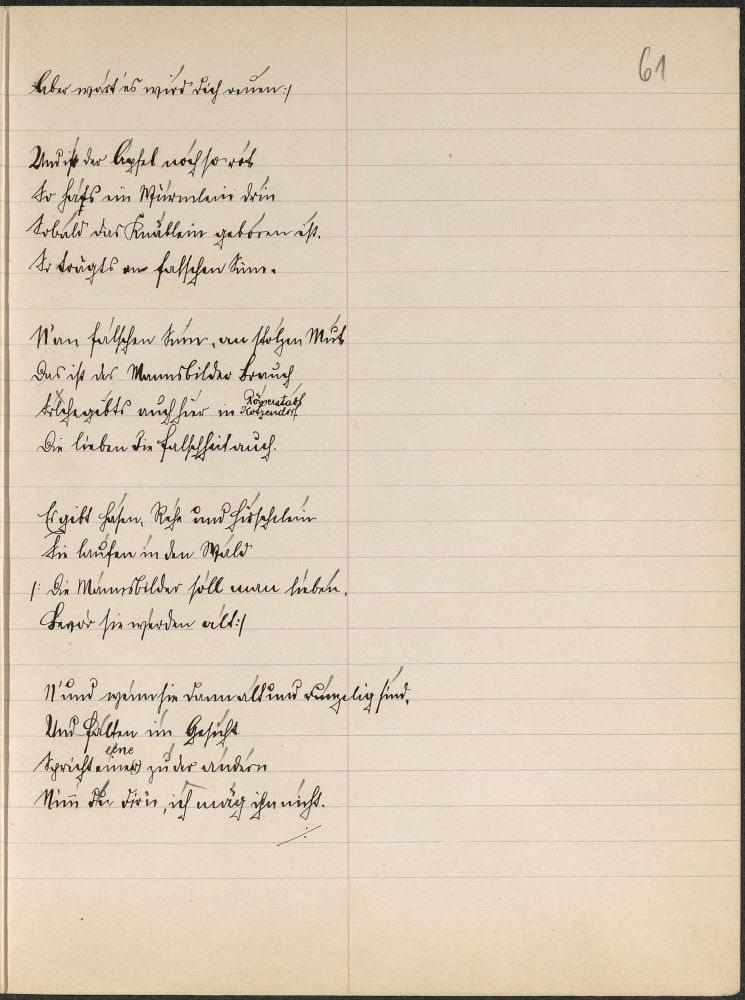 61
Aber wart' es wird dich reuen :/
Und ist der Apfel noch so rot
So hat's ein Würmlein drin
Sobald das Knäblein geboren ist.
So trägts en falschen Sinn.
N'an falschen Sinn, an stolzen Mut
Das ist der Mannsbilder Brauch
Solche gebts auch hier in Röperstadt Kotzendorf
Die lieben die Falschheit auch.
Es gibt Hasen, Rehe und Hirschelein
Sie laufen in den Wald
/: Die Mannsbilder soll man lieben.
Bevor sie werden alt :/
N'und wenn sie dann alt und runzelig sind.
Und Falten im Gesicht
eine
Spricht einer zu der andern
Nimm du dirn, ich mag ihn nicht.